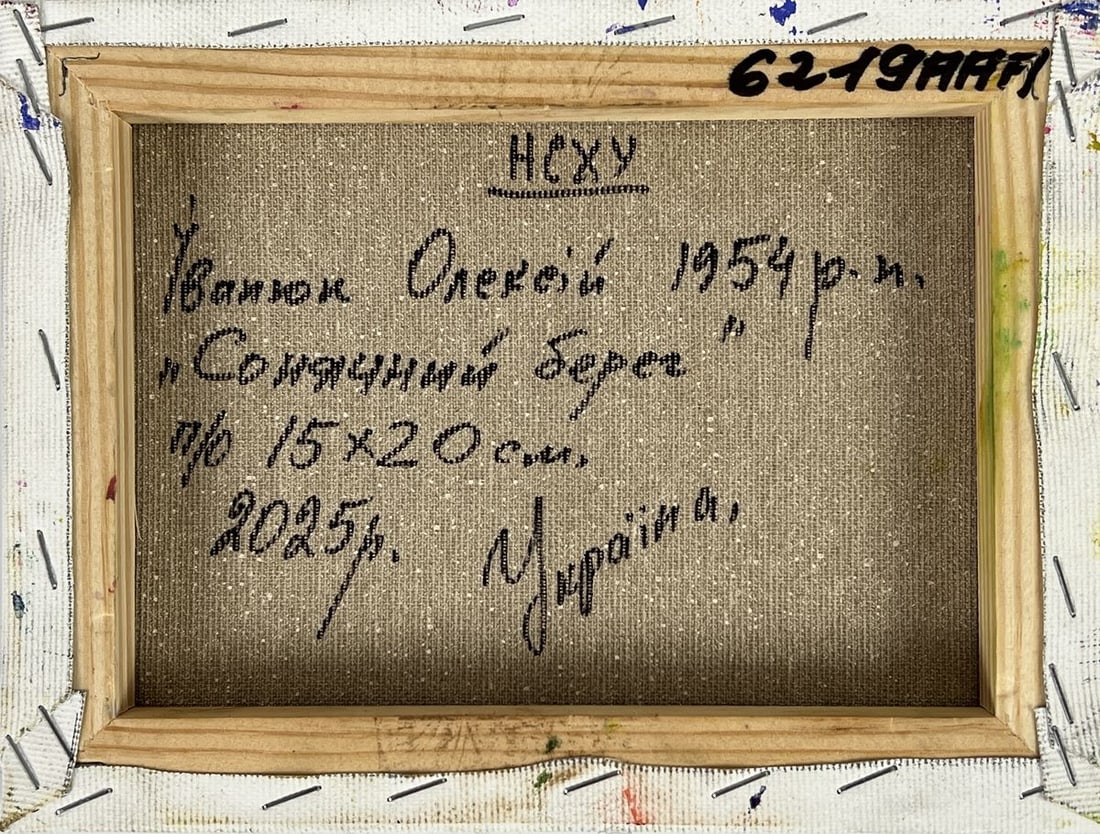 6219AAFA
НСХУ
Іванюк Олексій 1954 р.н.
"Сонячний берег"
п/о 15×20 см.
2025р. Україна.